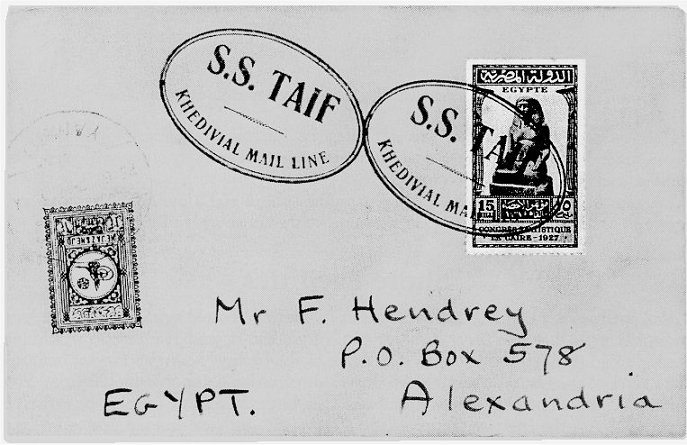 S.S. TAIF
KHEDIVIAL MAIL LINE
S.S. TAIF
KHEDIVIAL MAIL
الدولة المصرية
EGYPTE
15
١٥
MILLS
CONGRÈS STATISTIQUE
LE CAIRE - 1927
HEJAZ & NEJD
Mr F. Hendrey
P.O. Box 578
Alexandria
EGYPT.